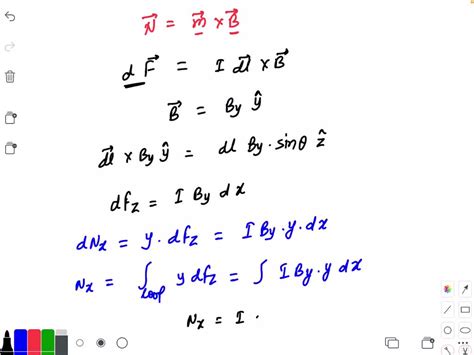 N⃗ = m⃗ × B⃗
dF⃗ = I dl⃗ × B⃗
B⃗ = By ŷ
dl⃗ × By ŷ = dl By · sinθ ẑ
dfz = I By dx
dNx = y · dfz = I By · y · dx
Nx = ∫loop y dfz = ∫ I By · y dx
Nx = I ·